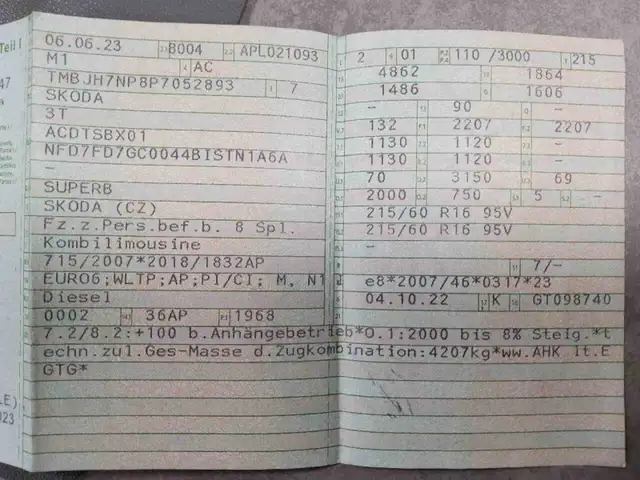 Teil I
06.06.23 8004 APL021093
M1 AC
TMBJH7NP8P7052893 7
SKODA
3T
ACDTSBX01
NFD7FD7GC0044BISTN1A6A
–
SUPERB
SKODA (CZ)
Fz.z.Pers.bef.b. 8 Spl.
Kombilimousine
715/2007*2018/1832AP
EURO6;WLTP;AP;PI/CI; M, N1
Diesel
0002 36AP 1968
2 01 110 /3000 215
4862 1864
1486 1606
– 90 –
132 2207 2207
1130 1120 –
1130 1120 –
70 3150 69
2000 750 5 –
215/60 R16 95V
215/60 R16 95V
–
7/–
e8*2007/46*0317*23
04.10.22 K GT098740
7.2/8.2:+100 b.Anhängebetrieb*O.1:2000 bis 8% Steig.*t
echn.zul.Ges-Masse d.Zugkombination:4207kg*ww.AHK lt.E
GTG*
47
LE)
023